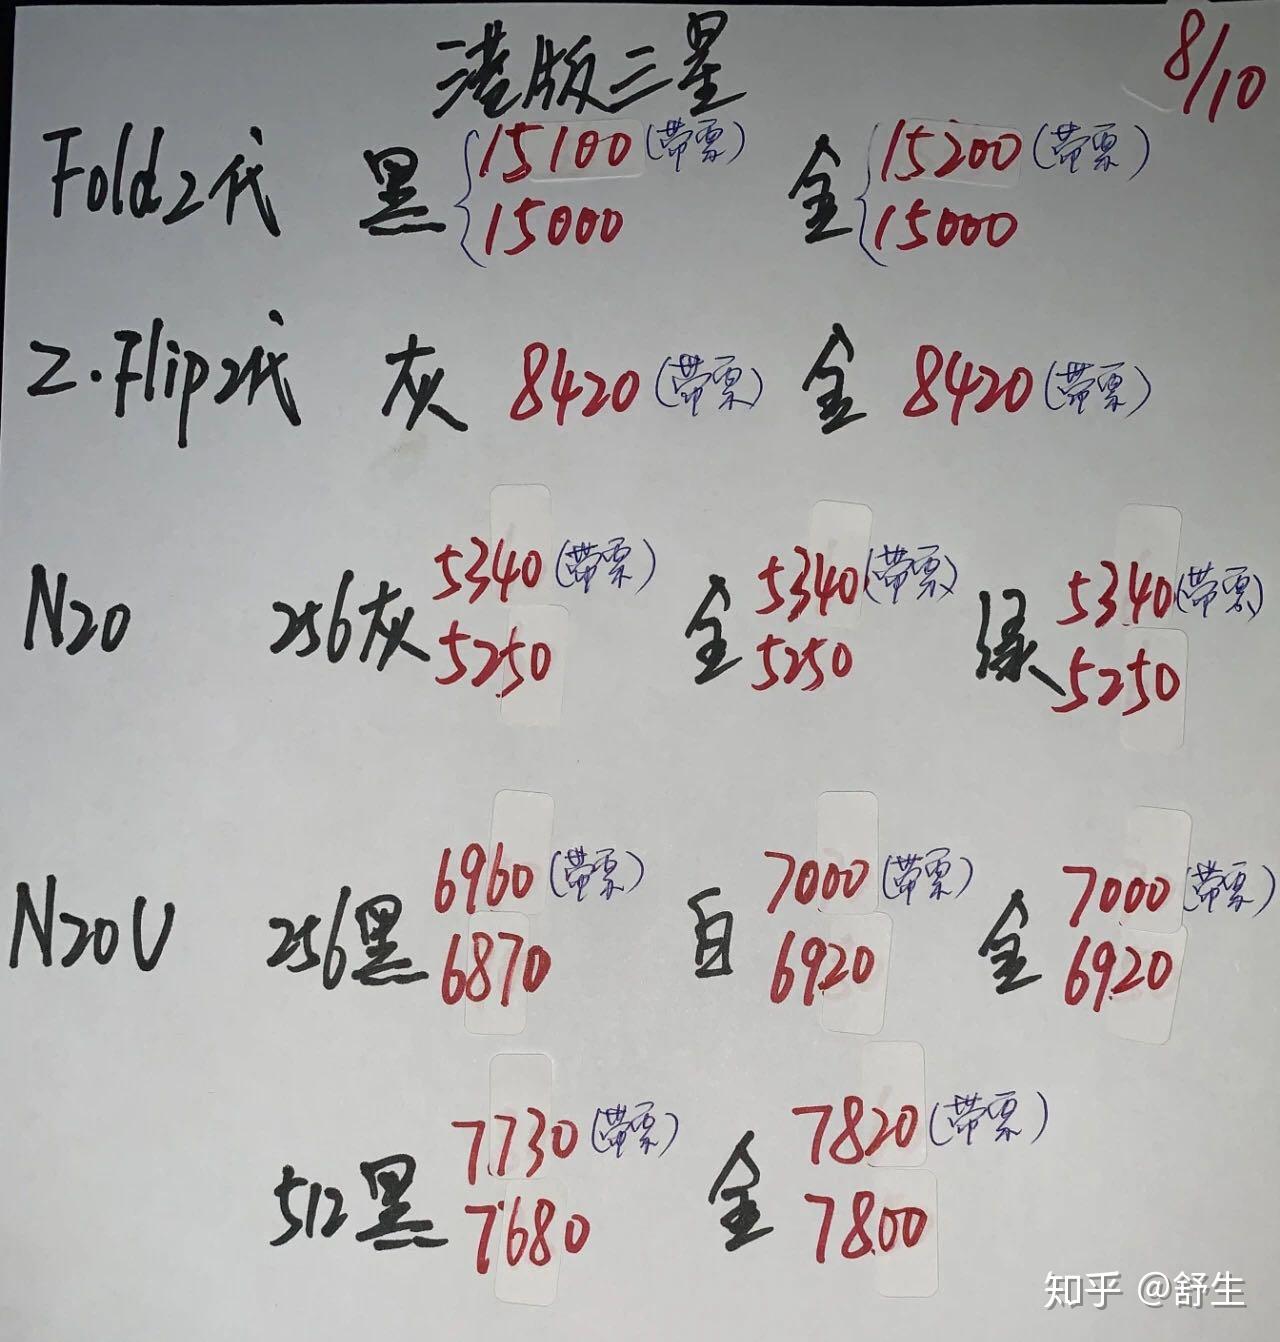 港版三星
8/10
Fold2代 黑 15100(带票) 金 15200(带票)
15000 15000
Z.Flip2代 灰 8420(带票) 金 8420(带票)
5340(带票) 5340(带票) 5340(带票)
N20 256灰 金 绿
5250 5250 5250
6960(带票) 7000(带票) 7000(带票)
N20U 256黑 白 金
6870 6920 6920
7730(带票) 7820(带票)
512黑 金
7680 7800
知乎 @舒生